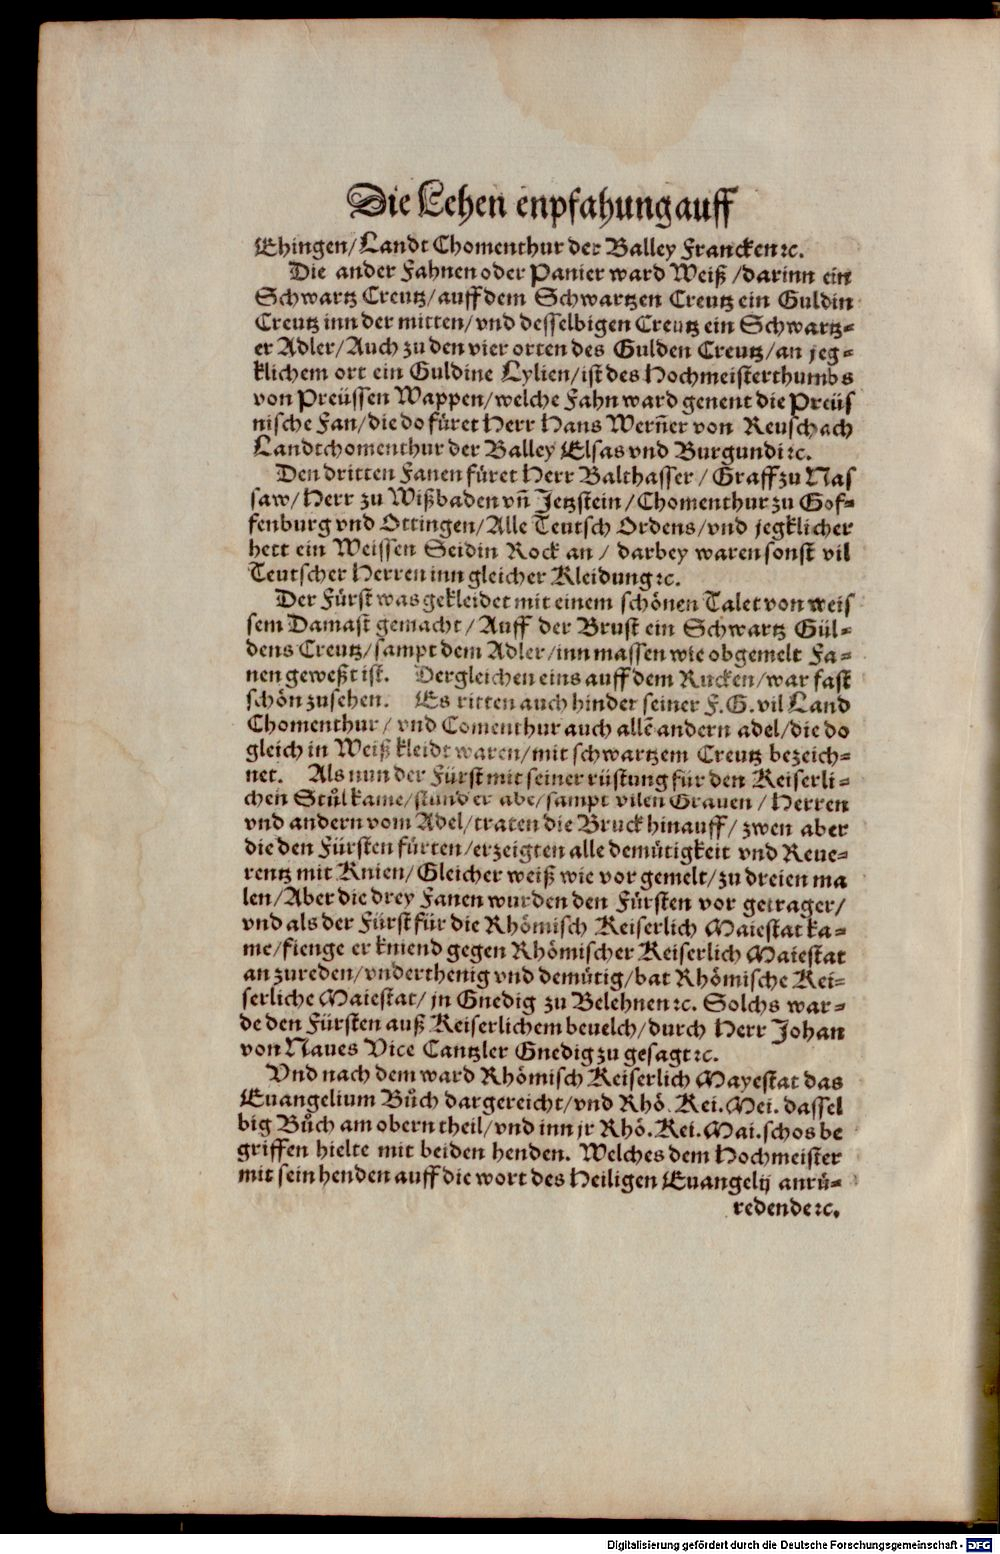 Die Lehen enpfahung auff
Ehingen/Landt Chomenthur der Balley Francken ꝛc.
Die ander Fahnen oder Panier ward Weiß/darinn ein
Schwartz Creutz/auff dem Schwartzen Creutz ein Guldin
Creutz inn der mitten/vnd desselbigen Creutz ein Schwartz-
er Adler/Auch zu den vier orten des Gulden Creutz/an jeg-
klichem ort ein Guldine Lylien/ist des Hochmeisterthumbs
von Preüssen Wappen/welche Fahn ward genent die Preüs
nische Fan/die do füret Herr Hans Wern̄er von Reuschach
Landtchomenthur der Balley Elsas vnd Burgundi ꝛc.
Den dritten Fanen füret Herr Balthasser/Graff zu Nas
saw/Herr zu Wißbaden vn̄ Jetzstein/Chomenthur zu Gof-
fenburg vnd Ottingen/Alle Teutsch Ordens/vnd jegklicher
hett ein Weissen Seidin Rock an/darbey waren sonst vil
Teutscher Herren inn gleicher Kleidung ꝛc.
Der Fürst was gekleidet mit einem schönen Talet von weis
sem Damast gemacht/Auff der Brust ein Schwartz Gül-
dens Creutz/sampt dem Adler/inn massen wie obgemelt Fa-
nen geweßt ist. Dergleichen eins auff dem Rucken/war fast
schön zusehen. Es ritten auch hinder seiner F.G. vil Land
Chomenthur/vnd Comenthur auch allē andern adel/die do
gleich in Weiß kleidt waren/mit schwartzem Creutz bezeich-
net. Als nun der Fürst mit seiner rüstung für den Keiserli-
chen Stůl kame/stund er abe/sampt vilen Grauen/Herren
vnd andern vom Adel/traten die Bruck hinauff/zwen aber
die den Fürsten fürten/erzeigten alle demütigkeit vnd Reue-
rentz mit Knien/Gleicher weiß wie vor gemelt/zu dreien ma
len/Aber die drey Fanen wurden den Fürsten vor getrager/
vnd als der Fürst für die Rhömisch Keiserlich Maiestat ka-
me/fienge er kniend gegen Rhömischer Keiserlich Maiestat
an zureden/vnderthenig vnd demütig/bat Rhömische Kei-
serliche Maiestat/jn Gnedig zu Belehnen ꝛc. Solchs war-
de den Fürsten auß Keiserlichem beuelch/durch Herr Johan
von Naues Vice Cantzler Gnedig zu gesagt ꝛc.
Vnd nach dem ward Rhömisch Keiserlich Mayestat das
Euangelium Bůch dargereicht/vnd Rhö. Kei. Mei. dassel
big Bůch am obern theil/vnd inn jr Rhö. Kei. Mai. schos be
griffen hielte mit beiden henden. Welches dem Hochmeister
mit sein henden auff die wort des Heiligen Euangelij anrü-
redende ꝛc.
Digitalisierung gefördert durch die Deutsche Forschungsgemeinschaft - DFG